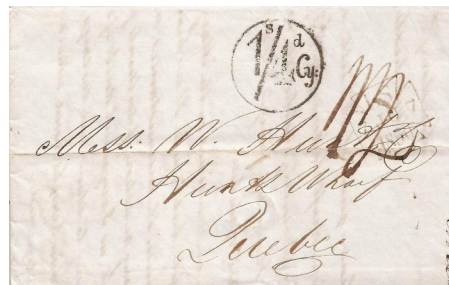 1s/4d Cy.
Mess: W. Hunt
Hunts Wharf
Quebec